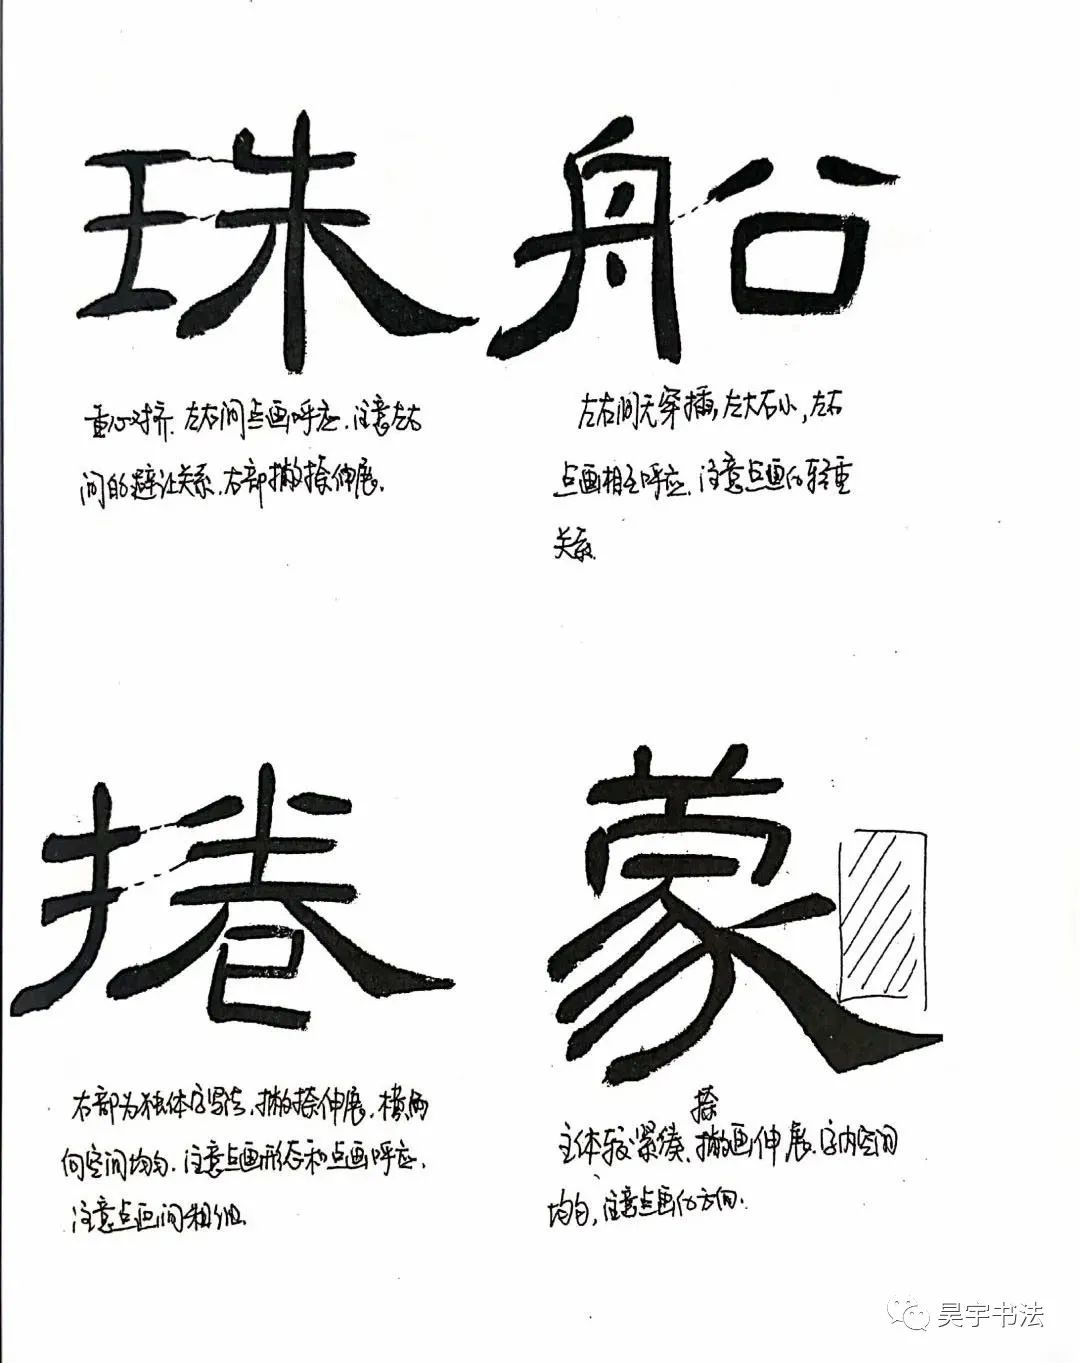 珠
重心对齐.左右间点画呼应.注意左右
间的避让关系.右部撇捺伸展.
船
左右间无穿插,左大右小,左右
点画相互呼应.注意点画的轻重
关系.
捲
右部为独体字写法,撇捺伸展.横画
间空间均匀.注意点画形态和点画呼应.
注意点画间粗细.
蒙
捺
主体较紧凑.撇画伸展.字内空间
均匀,注意点画的方向.
昊宇书法